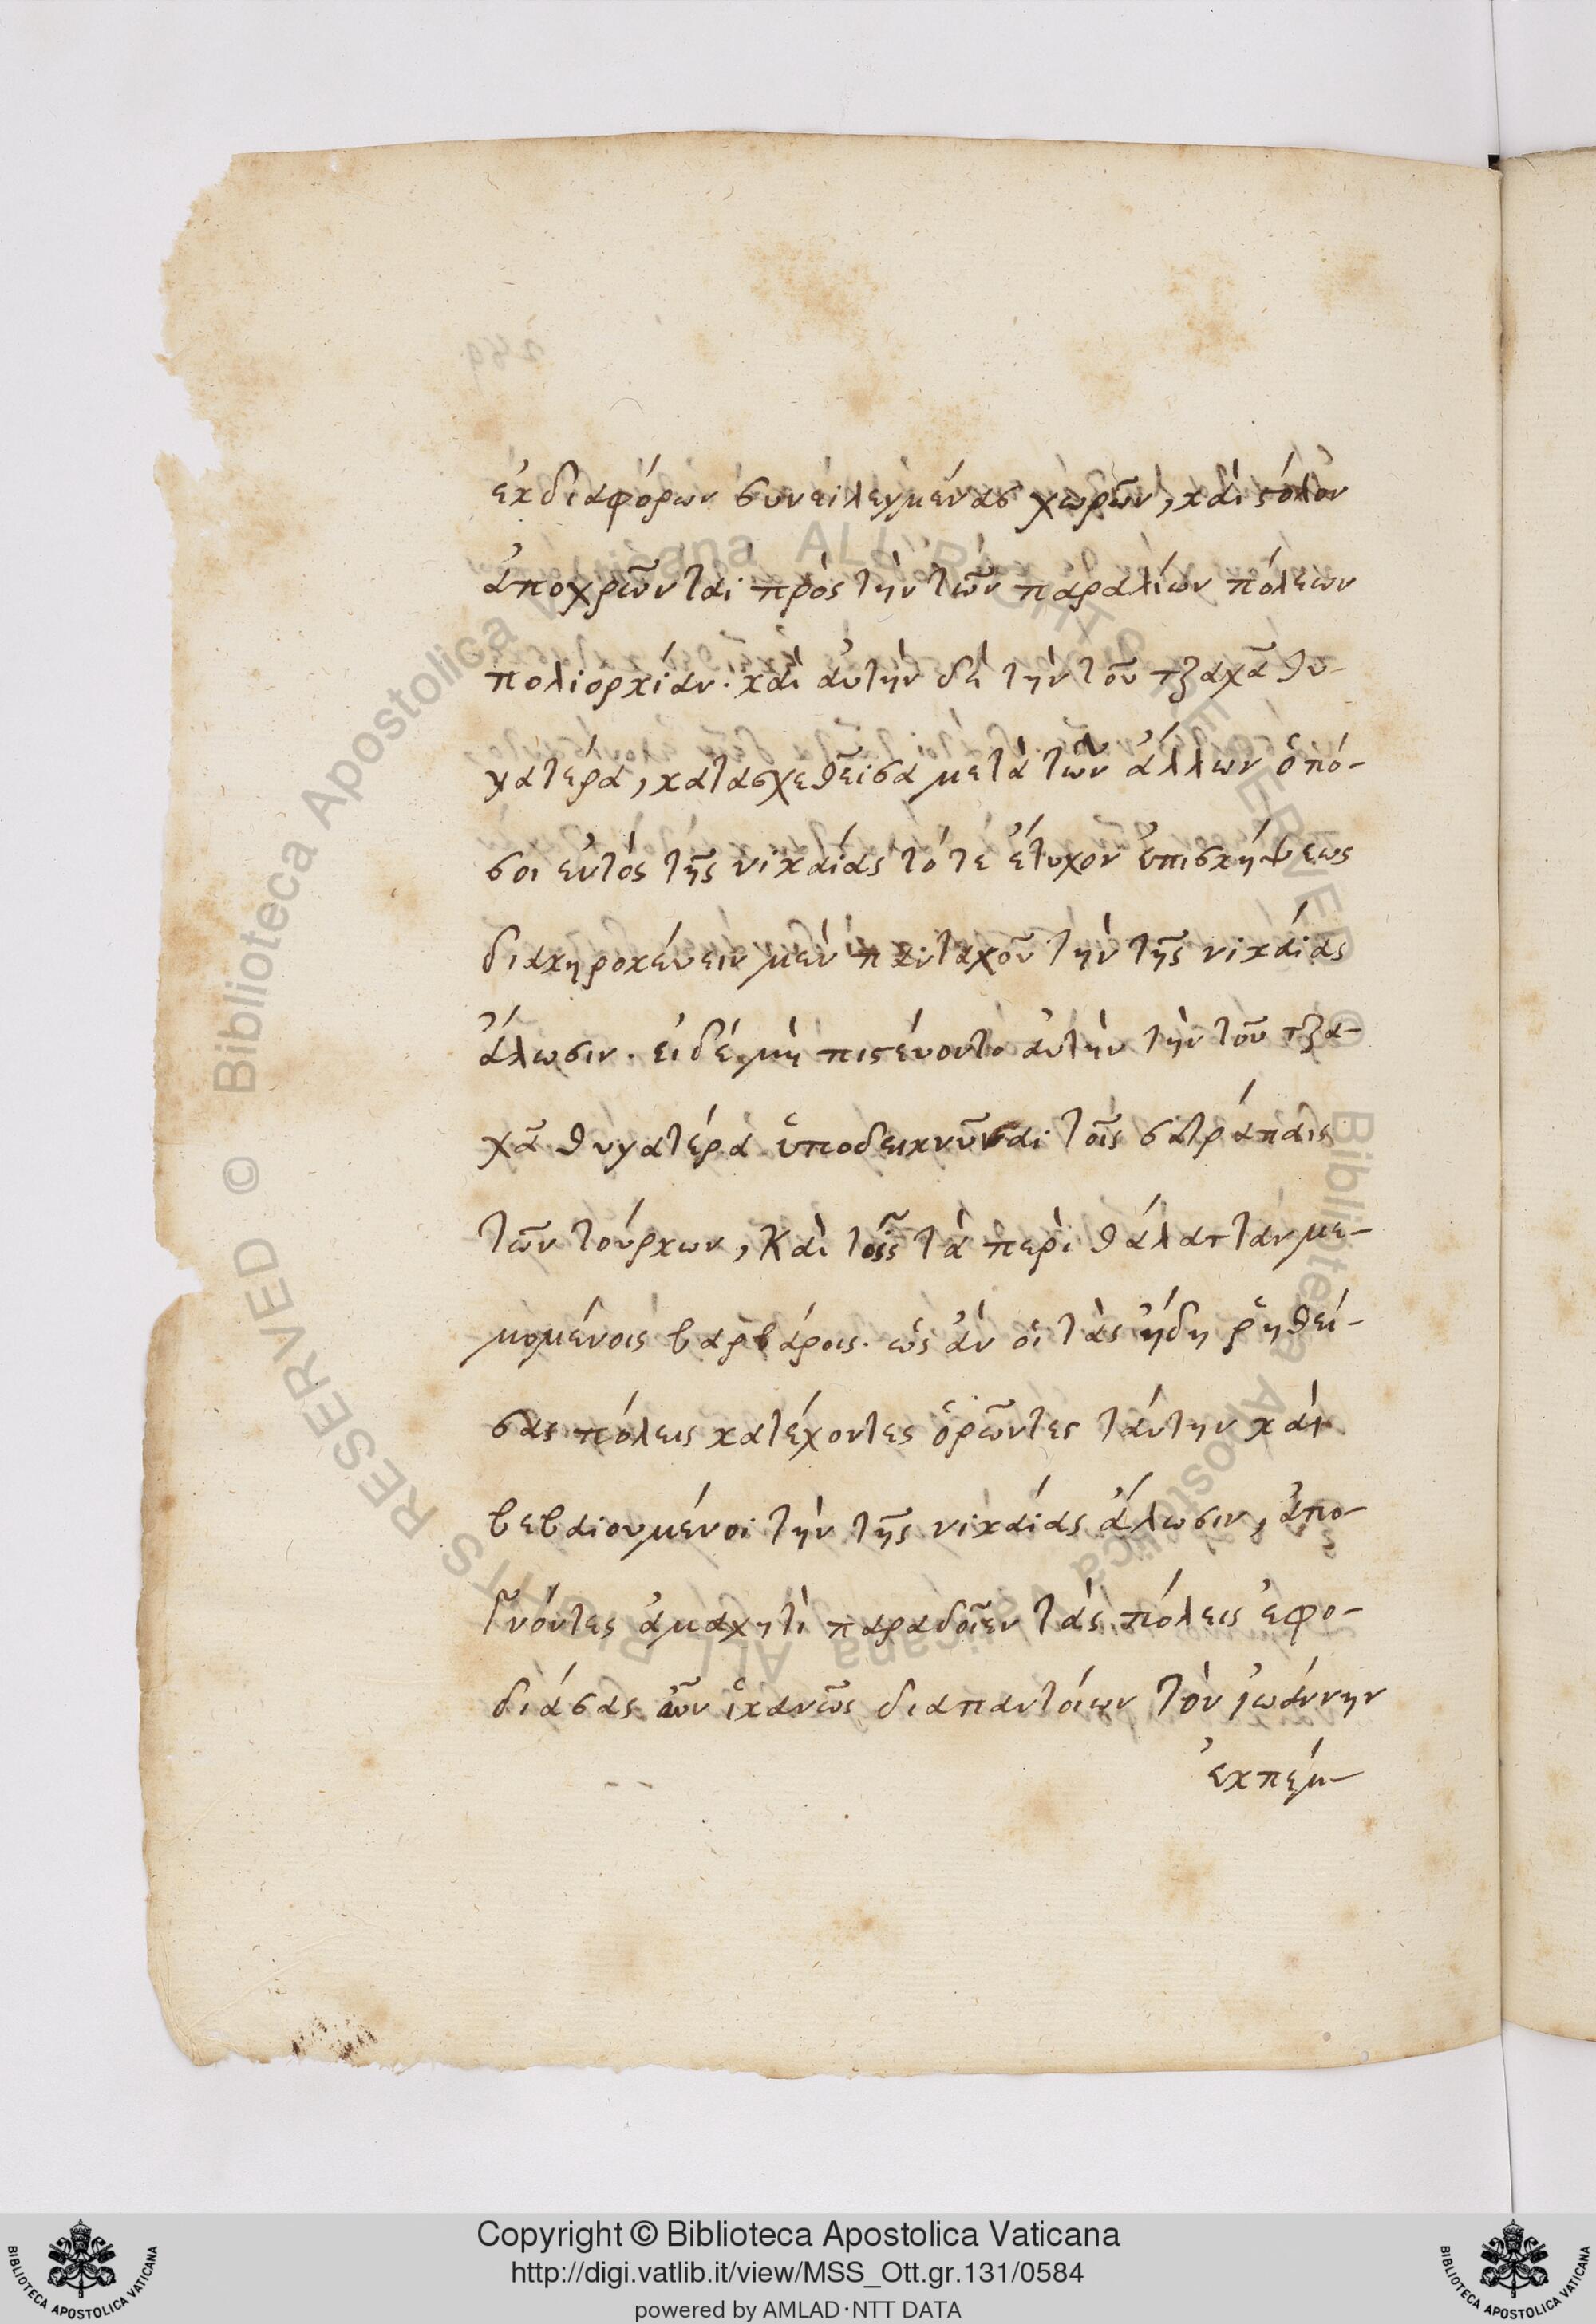 ἐκδιαφόρων συνειλεγμένας χωρῶν, καὶ στόλον
ἀποχρῶνται πρὸς τὴν τῶν παραλίων πόλεων
πολιορκίαν. καὶ ἀυτὴν δὲ τὴν τοῦ τζαχᾶ θυ-
γατέρα, κατασχεθεῖσα μετὰ τῶν ἄλλων ὁπό-
σοι ἐντὸς τῆς νικαίας τότε ἔτυχον ἐπισκήψεως
διακηροκέυειν μὲν πανταχοῦ τὴν τῆς νικαίας
ἅλωσιν. εἰδέ μὴ πιστέυοιντο ἀυτὴν τὴν τοῦ τζα-
χᾶ θυγατέρα ὑποδεικνῦσαι τοῖς σατράπαις
τῶν τούρκων, Καὶ τοῖς τὰ περὶ θάλατταν με-
μομένοις βαρβάροις. ὡς ἂν οἱ τὰς ἤδη ῥηθεί-
σας πόλεις κατέχοντες ὁρῶντες ταύτην καὶ
βεβαιουμένοι τὴν τῆς νικαίας ἅλωσιν, ἀπο-
γνόντες ἀμαχητὶ παραδοῖεν τὰς πόλεις ἐφο-
διάσας οὖν ἱκανῶς διαπαντοίων τὸν ἰωάννην
ἐκπέμ-
Copyright © Biblioteca Apostolica Vaticana
http://digi.vatlib.it/view/MSS_Ott.gr.131/0584
powered by AMLAD·NTT DATA
BIBLIOTECA APOSTOLICA VATICANA
BIBLIOTECA APOSTOLICA VATICANA
© Biblioteca Apostolica Vaticana ALL RIGHTS RESERVED
© Biblioteca Apostolica Vaticana ALL RIGHTS RESERVED